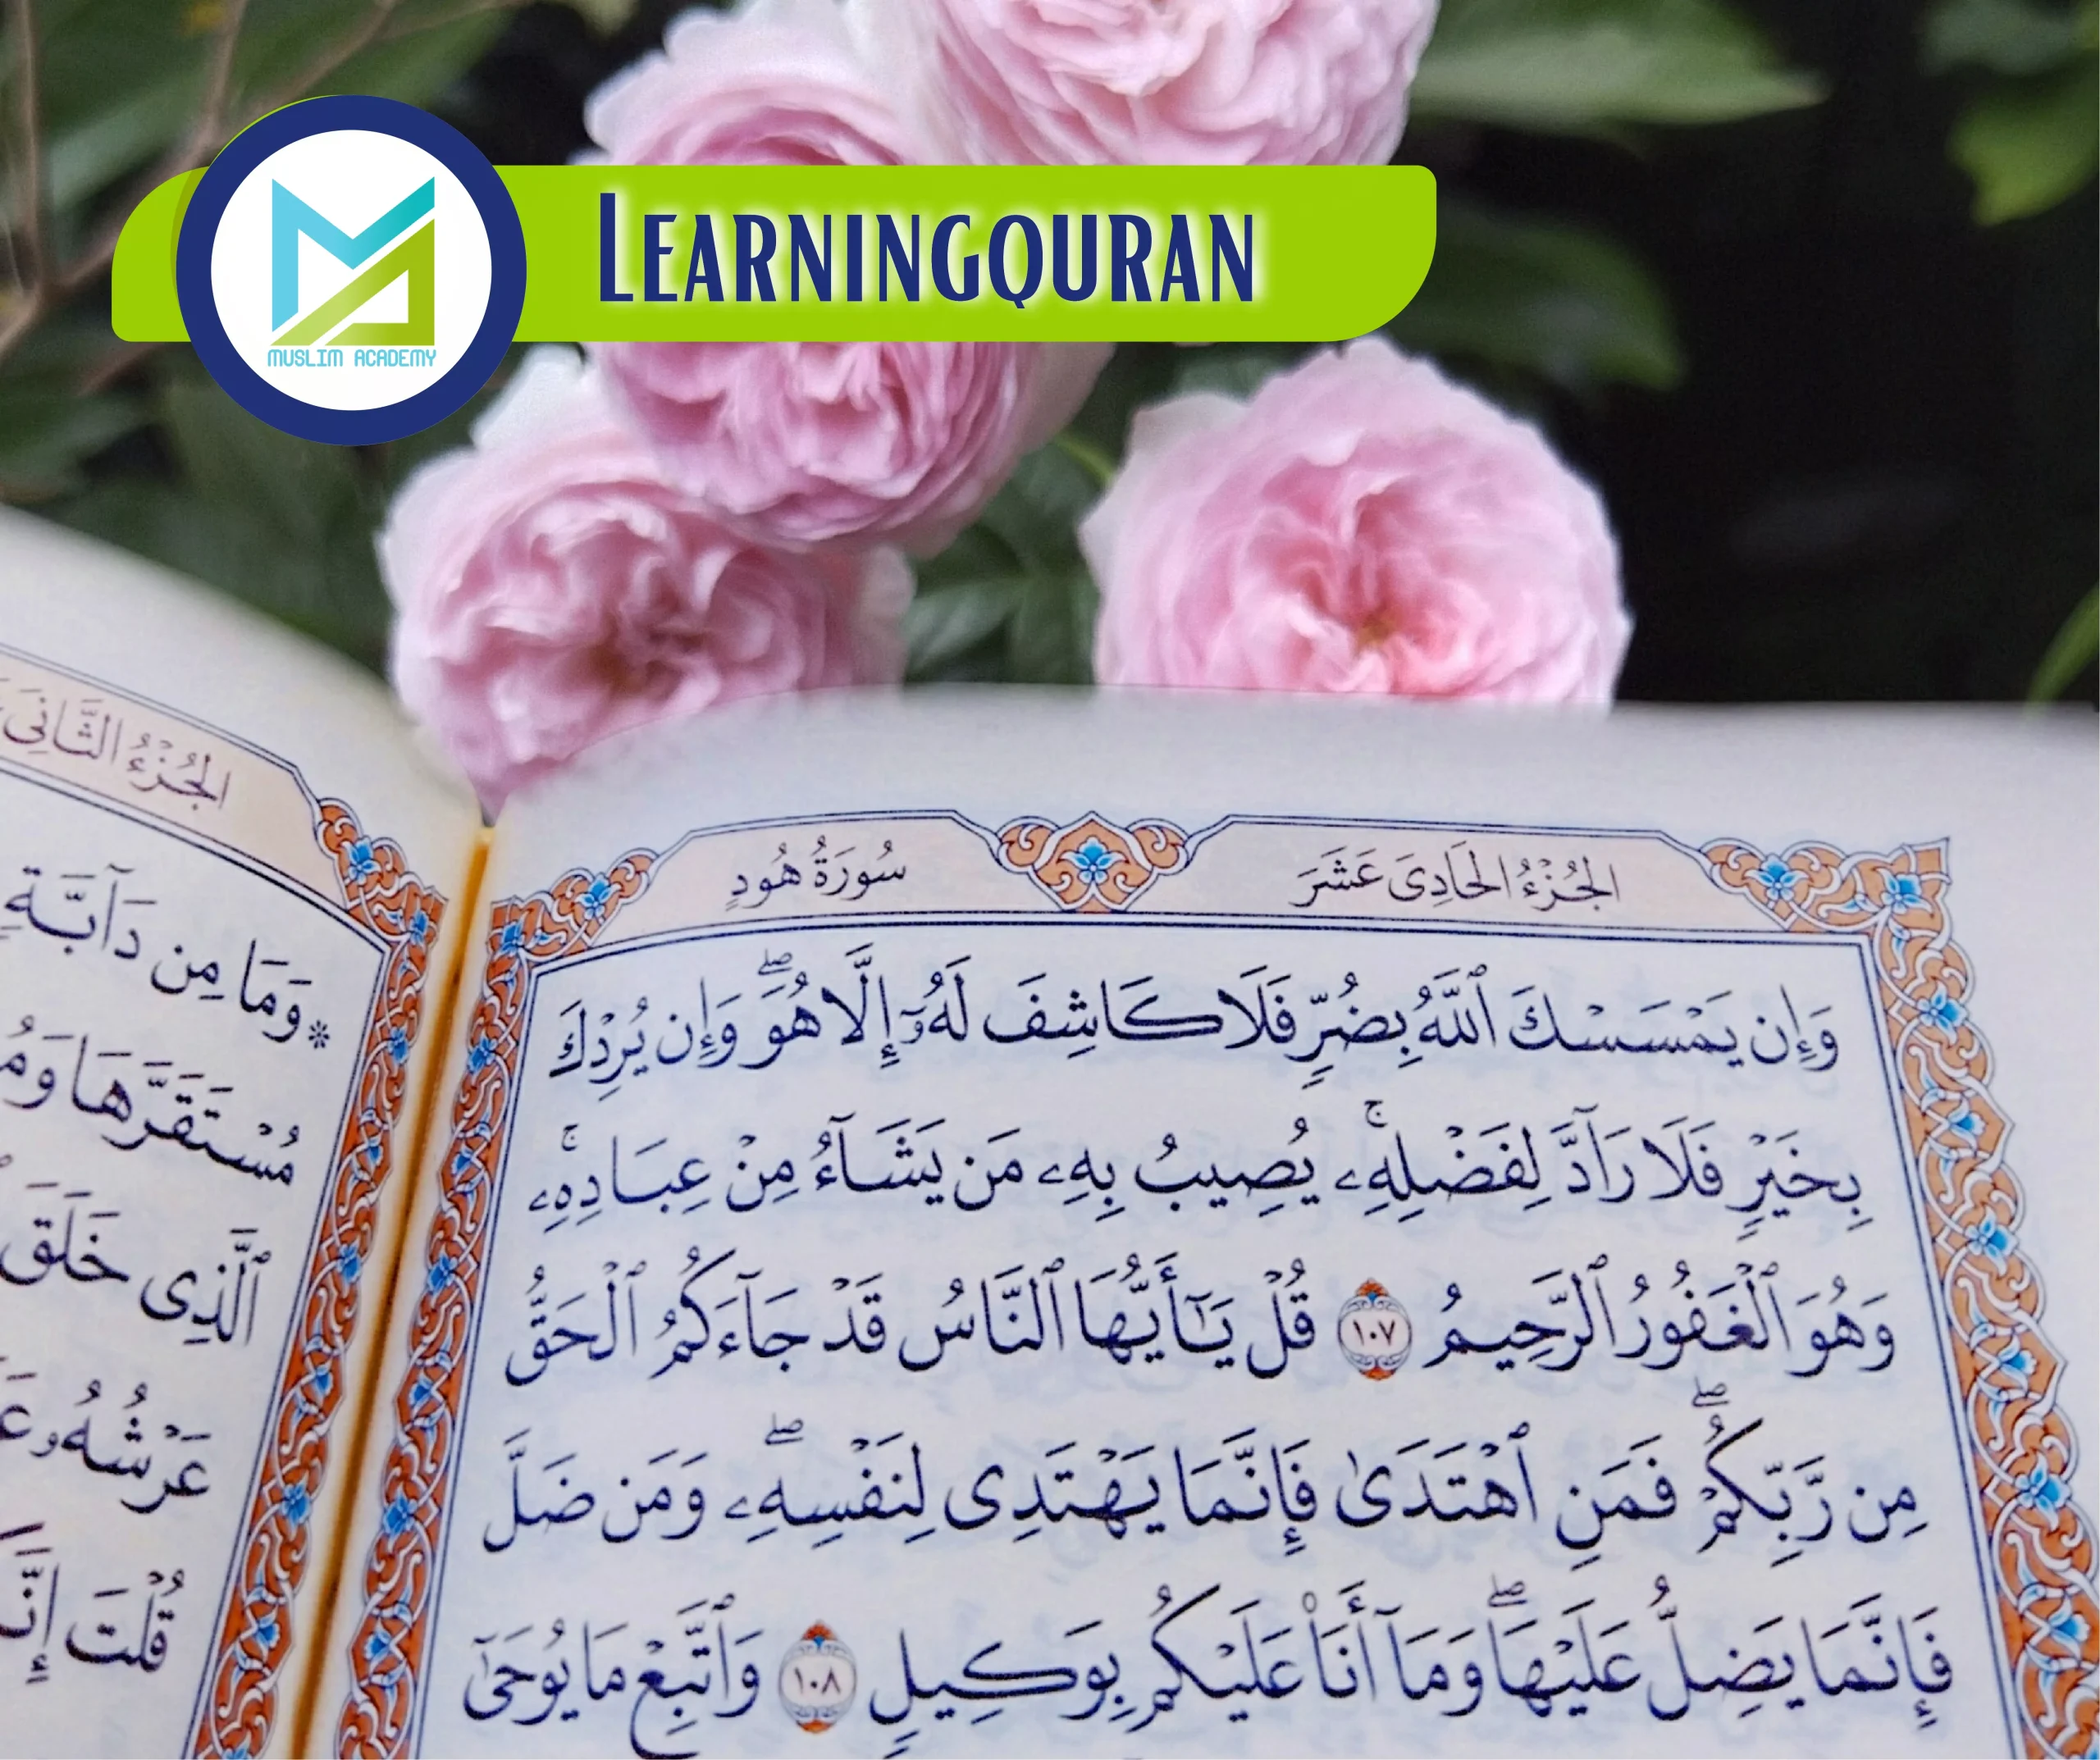 LEARNINGQURAN
MUSLIM ACADEMY
الجُزْءُ الحَادِىَ عَشَرَ
سُورَةُ هُودٍ
وَإِن يَمْسَسْكَ ٱللَّهُ بِضُرٍّ فَلَا كَاشِفَ لَهُۥٓ إِلَّا هُوَۖ وَإِن يُرِدْكَ
بِخَيْرٍ فَلَا رَآدَّ لِفَضْلِهِۦۚ يُصِيبُ بِهِۦ مَن يَشَآءُ مِنْ عِبَادِهِۦۚ
وَهُوَ ٱلْغَفُورُ ٱلرَّحِيمُ ١٠٧ قُلْ يَـٰٓأَيُّهَا ٱلنَّاسُ قَدْ جَآءَكُمُ ٱلْحَقُّ
مِن رَّبِّكُمْۖ فَمَنِ ٱهْتَدَىٰ فَإِنَّمَا يَهْتَدِى لِنَفْسِهِۦۖ وَمَن ضَلَّ
فَإِنَّمَا يَضِلُّ عَلَيْهَاۖ وَمَآ أَنَا۠ عَلَيْكُم بِوَكِيلٍ ١٠٨ وَٱتَّبِعْ مَا يُوحَىٰٓ
الجُزْءُ الثَّانِىَ
۞ وَمَا مِن دَآبَّةٍ
مُسْتَقَرَّهَا
ٱلَّذِى خَلَقَ
عَرْشُهُۥ
قُلْتَ